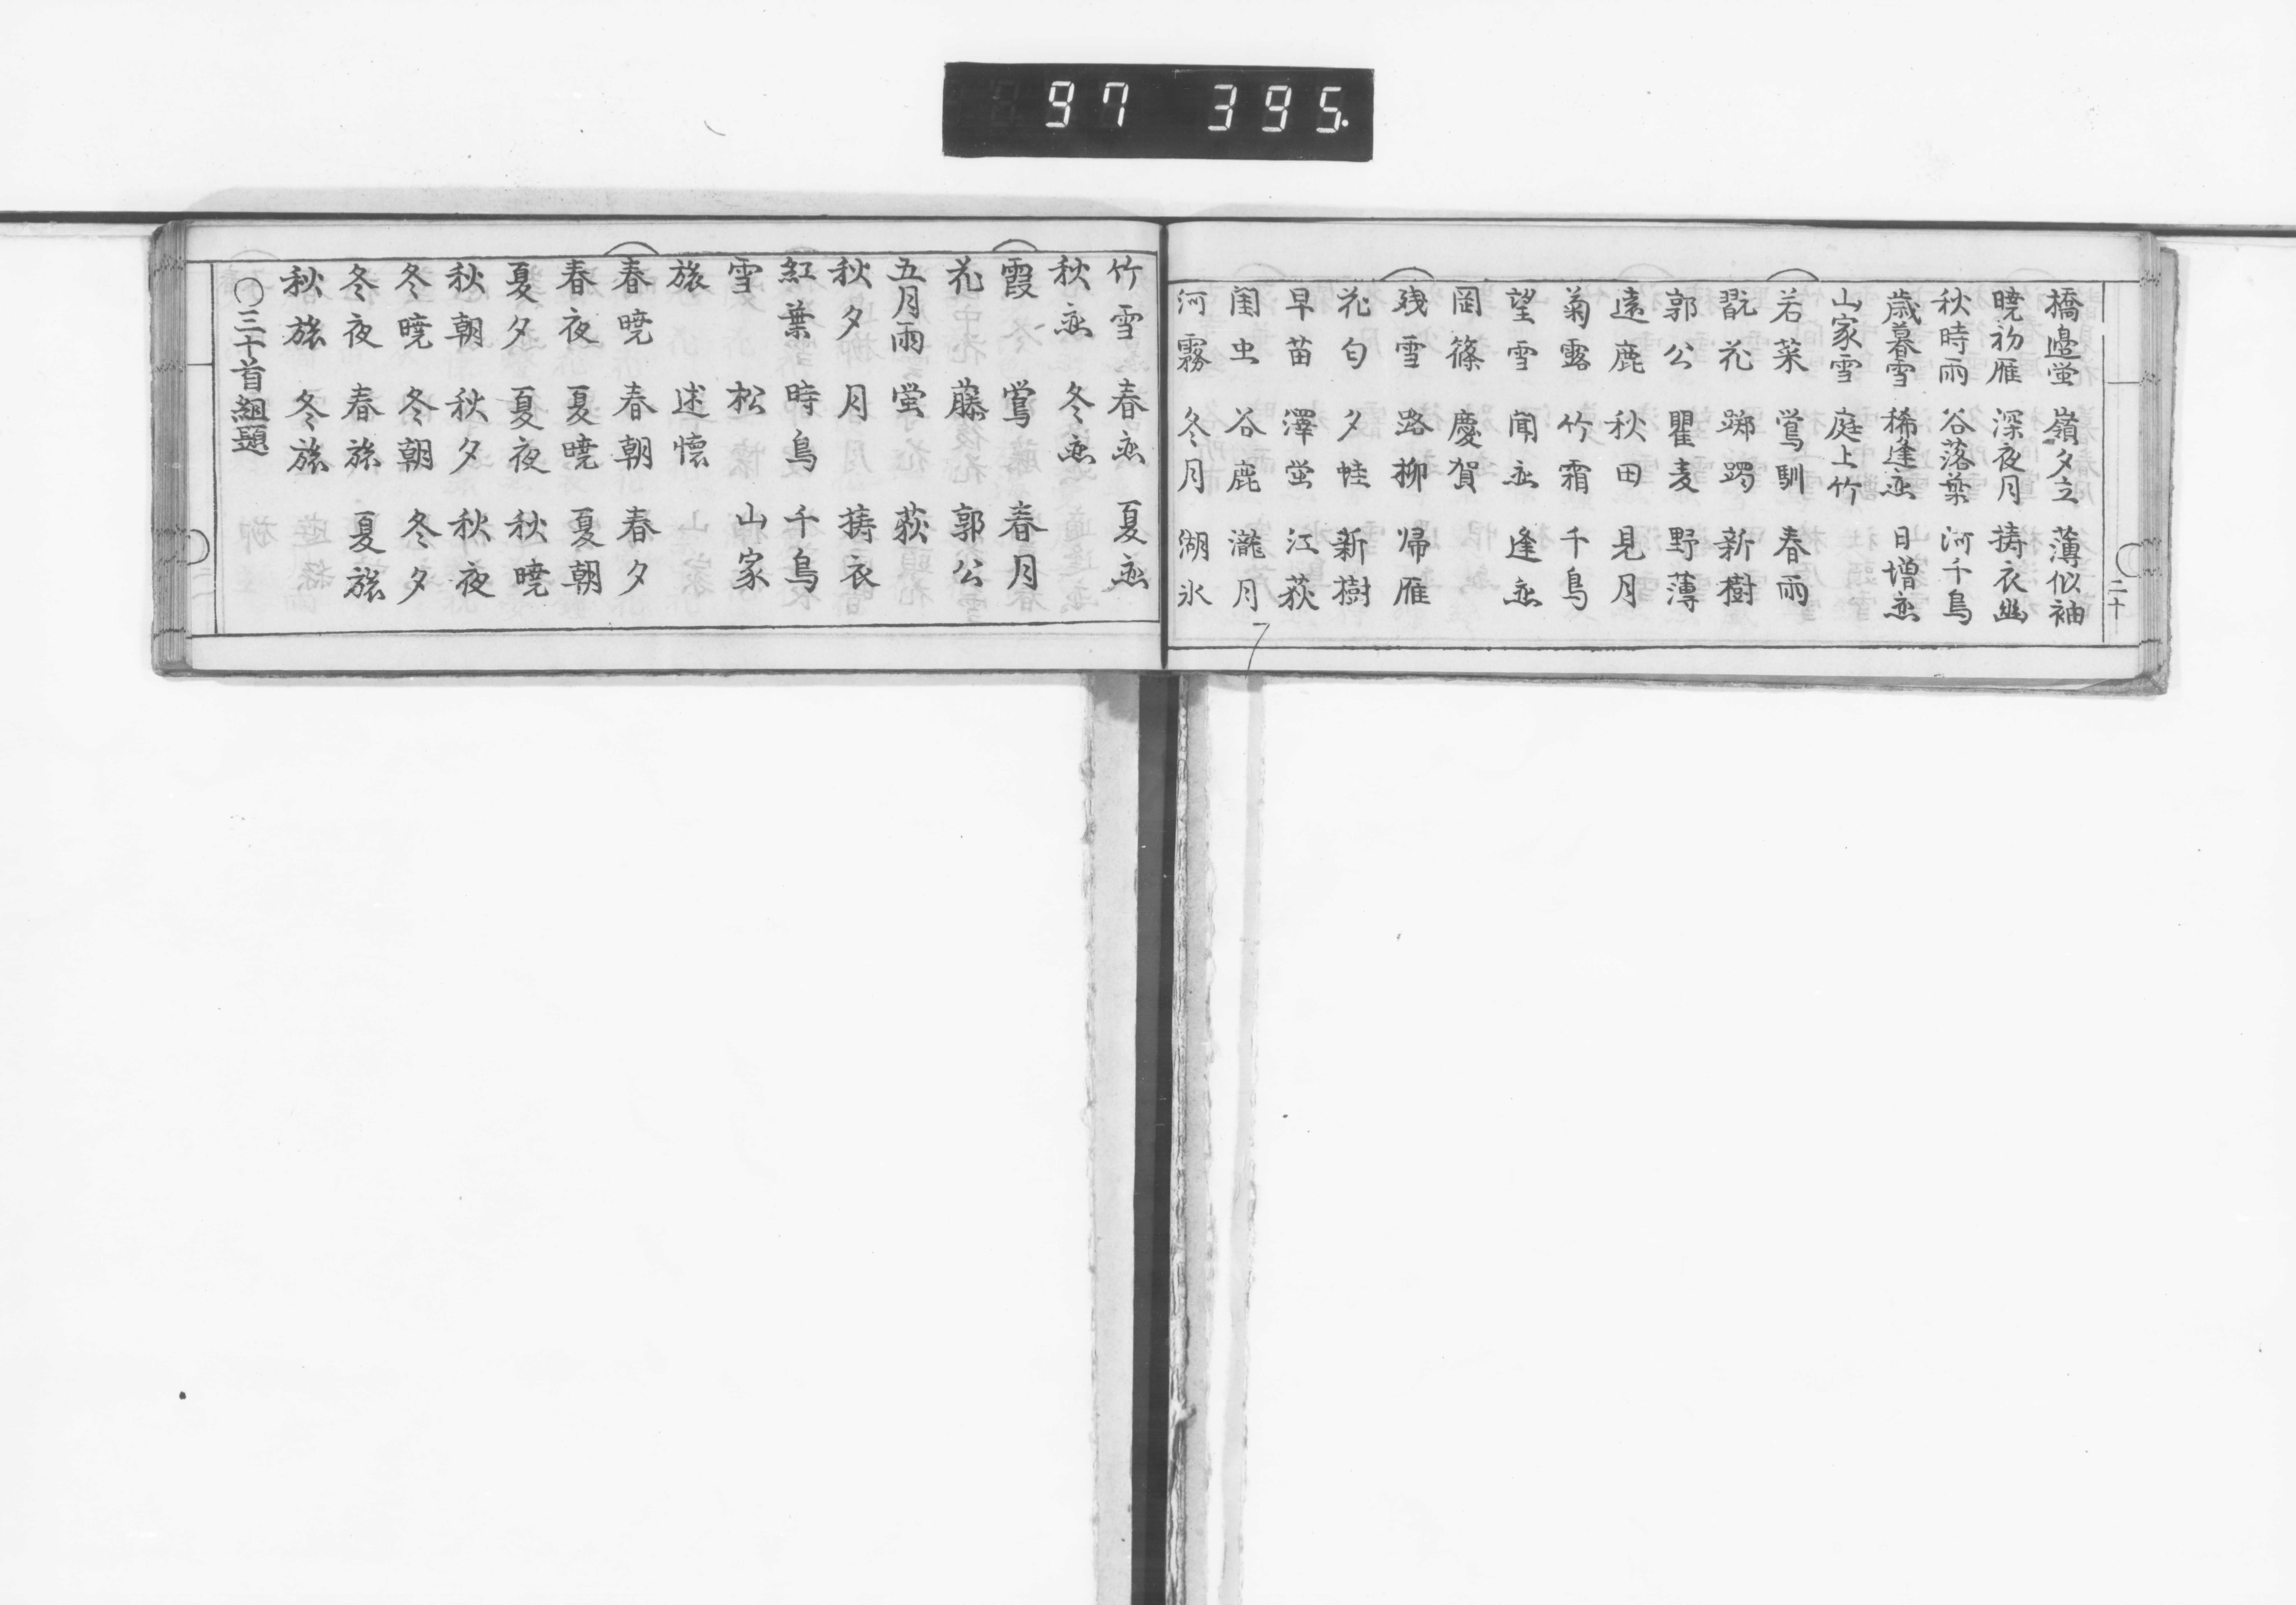 97 395.
二十
橋邉蛍 嶺夕立 薄似袖
暁初雁 深夜月 擣衣幽
秋時雨 谷落葉 河千鳥
歳暮雪 稀逢恋 日増恋
山家雪 庭上竹
若菜 鴬馴 春雨
翫花 躑躅 新樹
郭公 瞿麦 野薄
遠鹿 秋田 見月
菊露 竹霜 千鳥
望雪 聞恋 逢恋
岡篠 慶賀
残雪 路柳 帰雁
花匂 夕蛙 新樹
早苗 澤蛍 江荻
閨虫 谷鹿 瀧月
河霧 冬月 湖氷
竹雪 春恋 夏恋
秋恋 冬恋
霞 鴬 春月
花 藤 郭公
五月雨 蛍 荻
秋夕 月 擣衣
紅葉 時鳥 千鳥
雪 松 山家
旅 述懐
春暁 春朝 春夕
春夜 夏暁 夏朝
夏夕 夏夜 秋暁
秋朝 秋夕 秋夜
冬暁 冬朝 冬夕
冬夜 春旅 夏旅
秋旅 冬旅
〇三十首組題